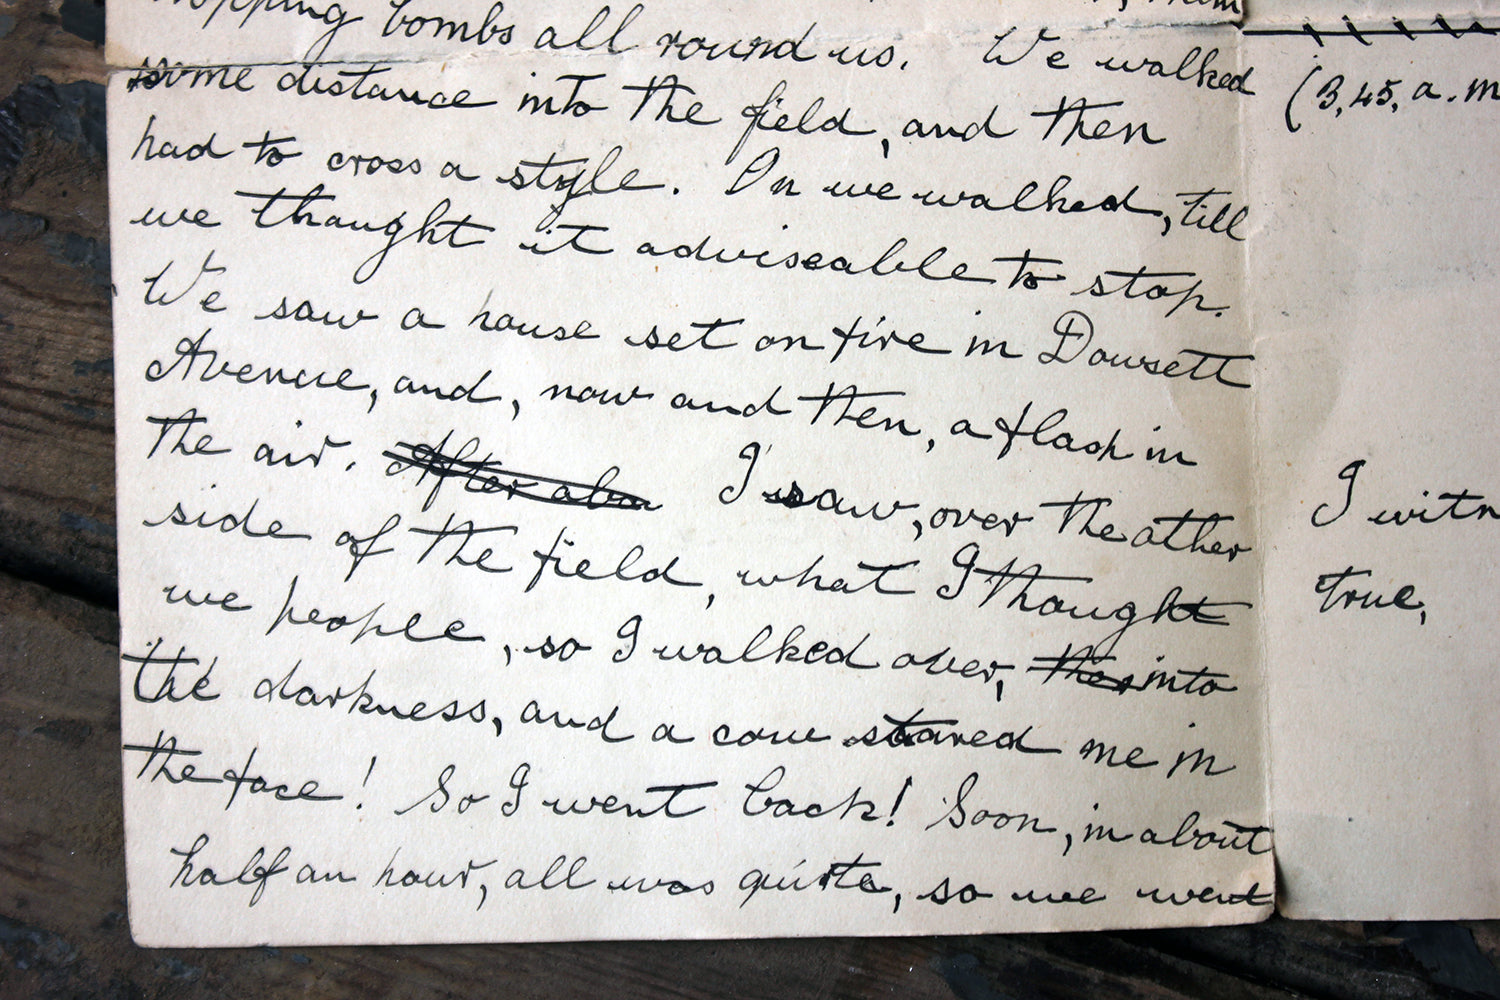 dropping bombs all round us. We walked
some distance into the field, and then
had to cross a style. On we walked, till
we thought it adviseable to stop.
We saw a house set on fire in Dowsett
Avenue, and, now and then, a flash in
the air. After abo I saw, over the other
side of the field, what I thought
we people, so I walked over, then into
the darkness, and a cow stared me in
the face! So I went back! Soon, in about
half an hour, all was quite, so we went
(3,45, a.m
I witn
true,